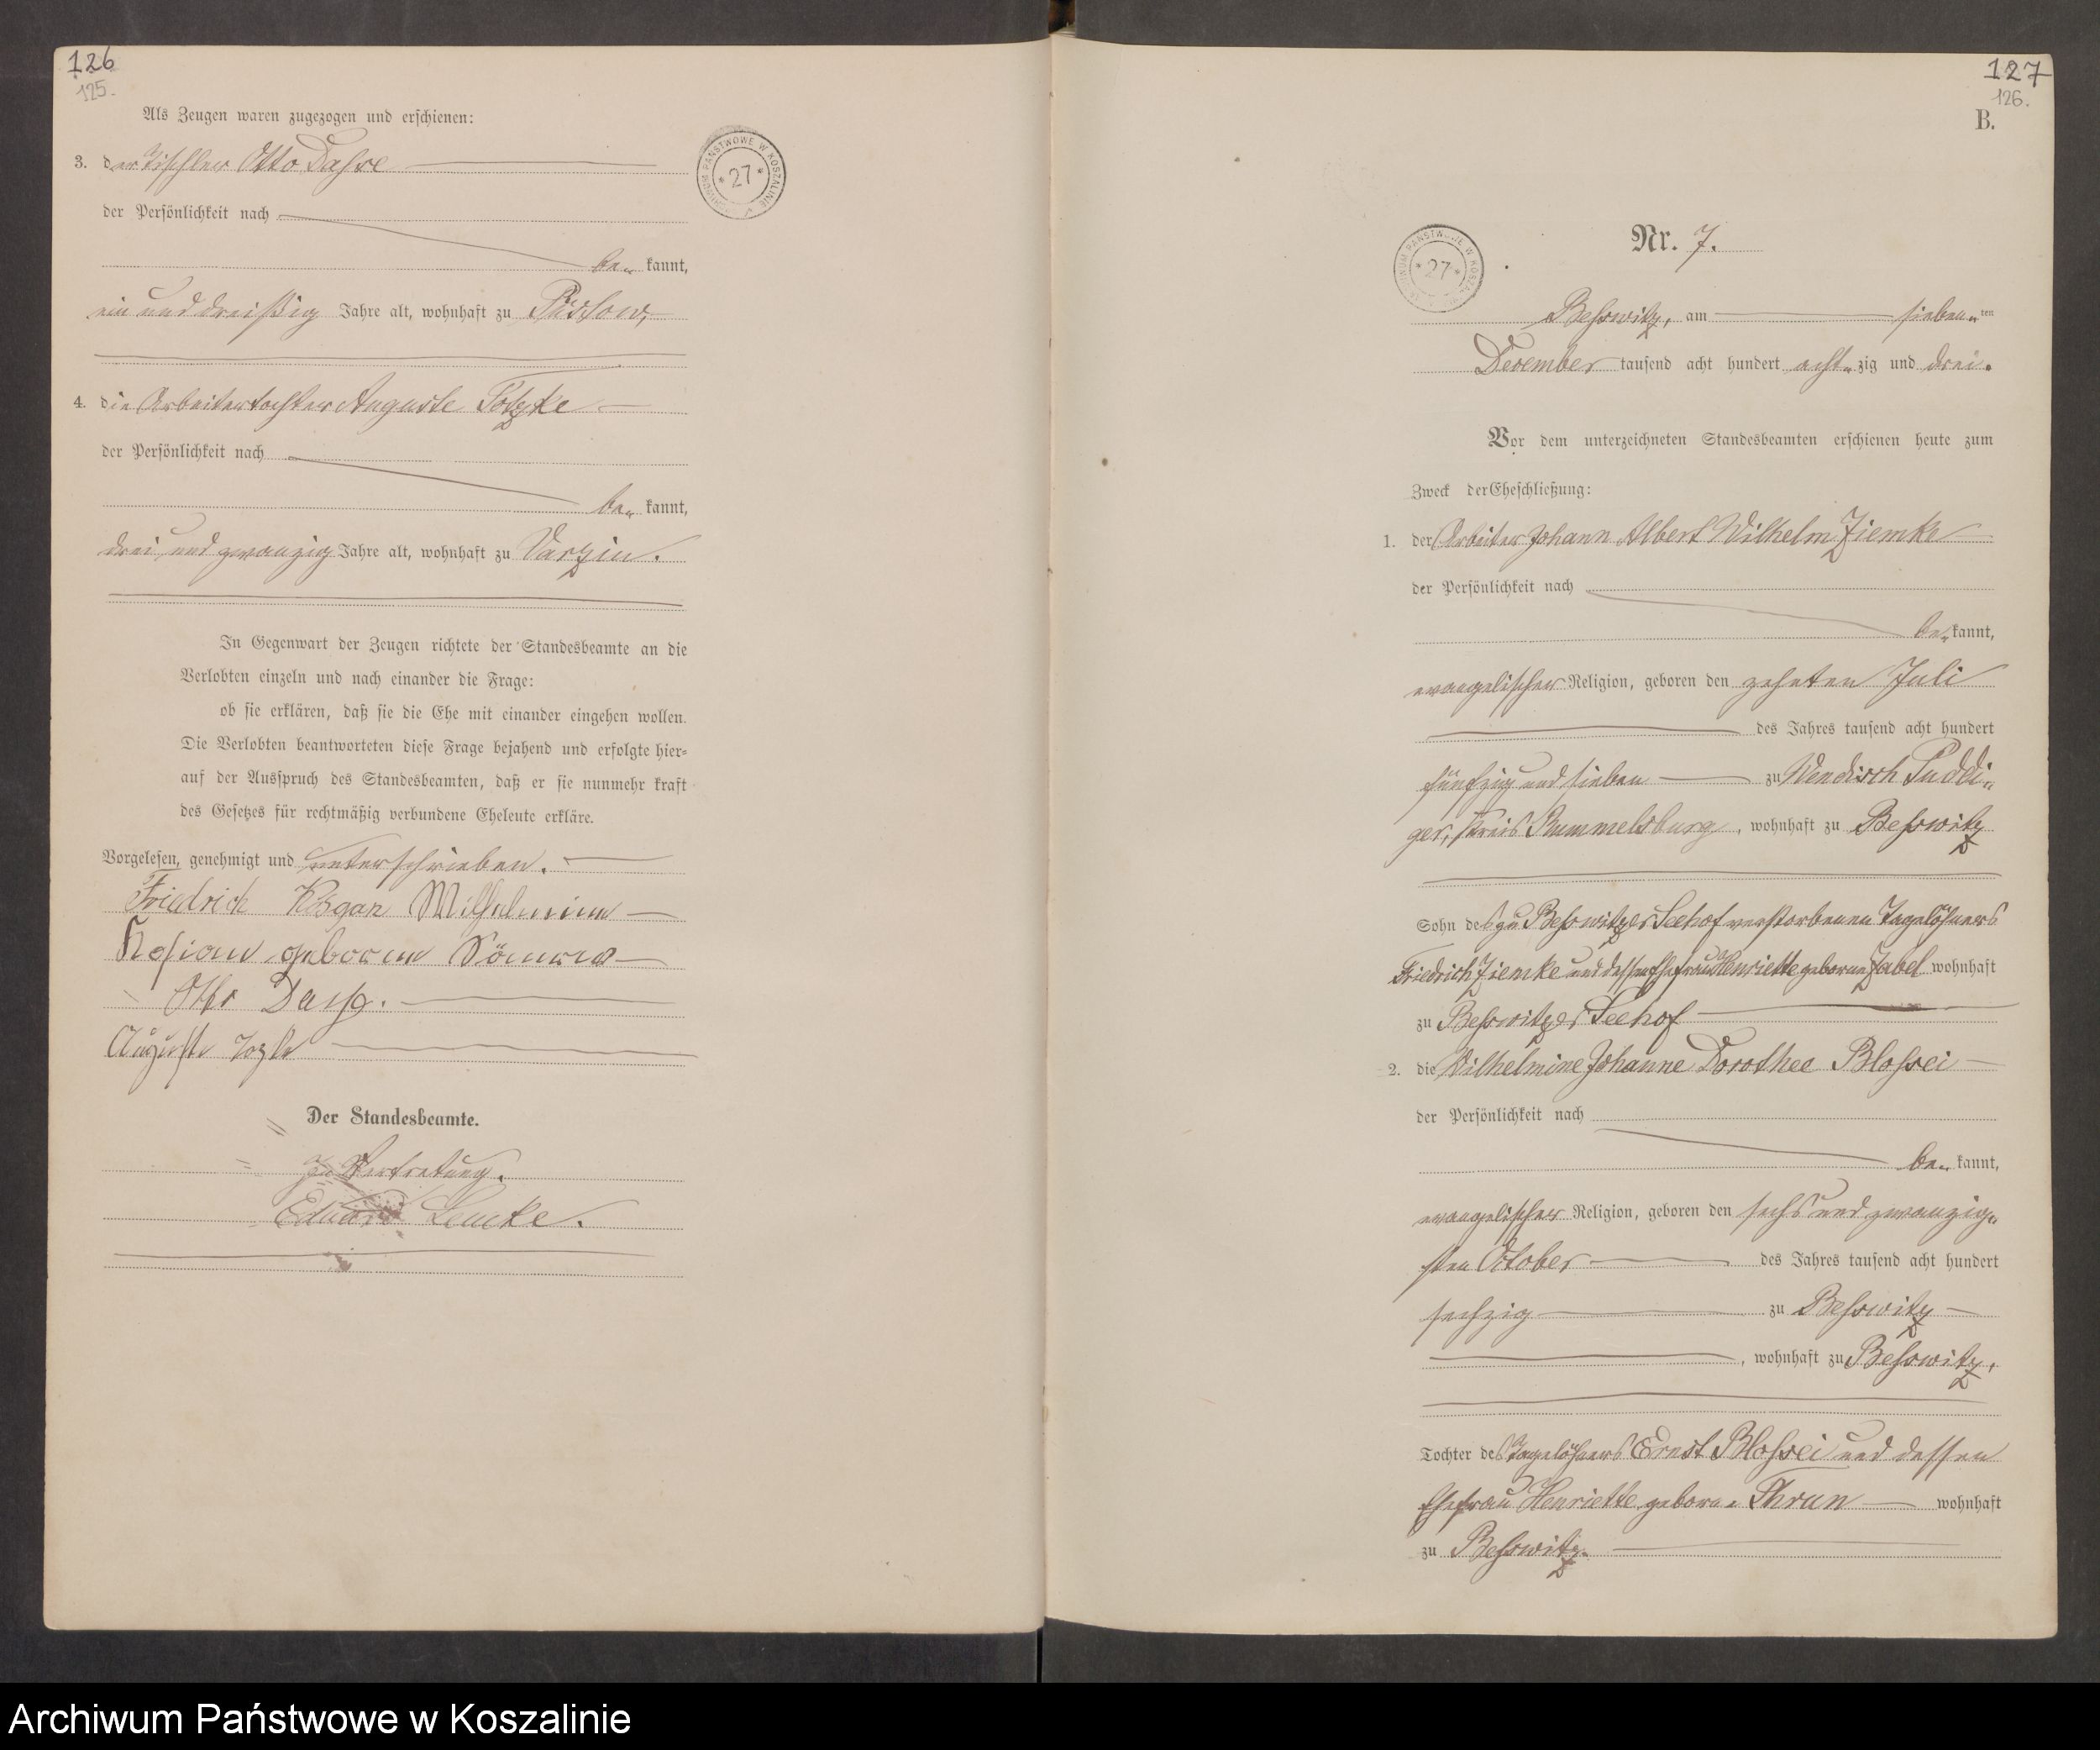 126
125.
Als Zeugen waren zugezogen und erschienen:
3. der Tischler Otto Dahse
der Persönlichkeit nach
be- kannt,
ein und dreißig Jahre alt, wohnhaft zu Püstow,
4. die Arbeitertochter Auguste Totzke
der Persönlichkeit nach
be- kannt,
drei und zwanzig Jahre alt, wohnhaft zu Varzin.
In Gegenwart der Zeugen richtete der Standesbeamte an die
Verlobten einzeln und nach einander die Frage:
ob sie erklären, daß sie die Ehe mit einander eingehen wollen.
Die Verlobten beantworteten diese Frage bejahend und erfolgte hier-
auf der Ausspruch des Standesbeamten, daß er sie nunmehr kraft
des Gesetzes für rechtmäßig verbundene Eheleute erkläre.
Vorgelesen, genehmigt und unterschrieben.
Friedrich Wilhelmine
geborene
Otto
Auguste
Der Standesbeamte.
In Vertretung.
Eduard Lemke.
ARCHIWUM PAŃSTWOWE W KOSZALINIE
* 27 *
127
126.
B.
ARCHIWUM PAŃSTWOWE W KOSZALINIE
* 27 *
Nr. 7.
Beßwitz, am sieben- ten
December tausend acht hundert acht- zig und drei.
Vor dem unterzeichneten Standesbeamten erschienen heute zum
Zweck der Eheschließung:
1. der Arbeiter Johann Albert Wilhelm Ziemke
der Persönlichkeit nach
be- kannt,
evangelischer Religion, geboren den zehnten Juli
des Jahres tausend acht hundert
fünfzig und sieben zu Wendisch Puddi-
ger, Kreis Rummelsburg, wohnhaft zu Beßwitz
Sohn des zu Beßwitzer Seehof verstorbenen Tagelöhners
Friedrich Ziemke und dessen Ehefrau Henriette geborene Zabel wohnhaft
zu Beßwitzer Seehof
2. die Wilhelmine Johanne Dorothee Bloßei
der Persönlichkeit nach
be- kannt,
evangelischer Religion, geboren den sechs und zwanzig-
sten October des Jahres tausend acht hundert
sechzig zu Beßwitz
, wohnhaft zu Beßwitz,
Tochter des Tagelöhners Ernst Bloßei und dessen
Ehefrau Henriette geborne Thrun wohnhaft
zu Beßwitz.
Archiwum Państwowe w Koszalinie